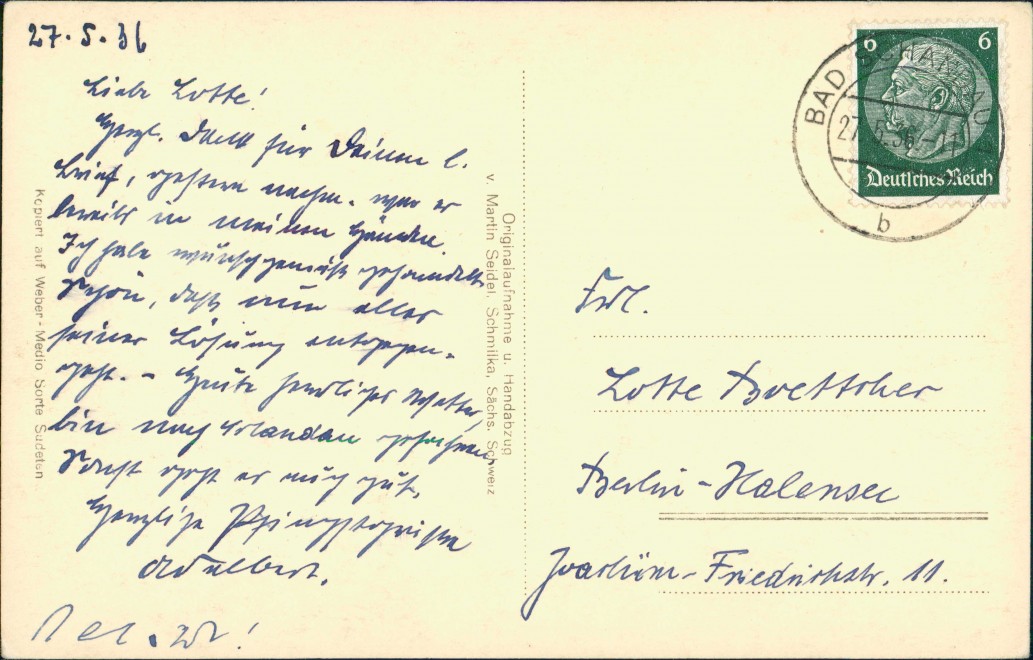 27.5.36
Liebe Lotte!
Herzl. Dank für Deinen l.
Brief, gestern nachm. war er
bereits in meinen Händen
Ich habe wunschgemäß gehandelt.
Schön, daß nun alles
seiner Lösung entgegen-
geht. - Heute herrliches Wetter,
bin nach gefahren,
Sonst geht es mir gut.
Herzliche Pfingstgrüße
Adalbert.
Kopiert auf Weber-Medio Sorte Sudeten
Originalaufnahme u. Handabzug
v. Martin Seidel, Schmilka, Sächs. Schweiz
6 6
Deutsches Reich
BAD SCHANDAU
27.5.36.-11
b
Frl.
Lotte Boettcher
Berlin-Halensee
Joachim-Friedrichstr. 11.